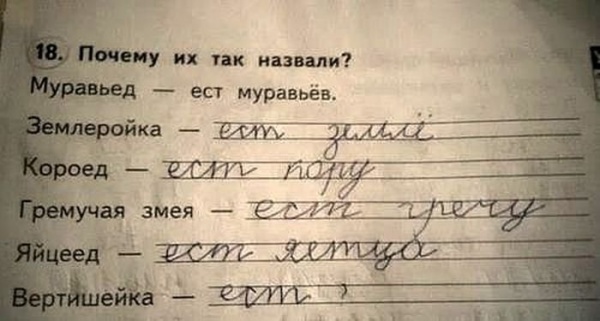 18. Почему их так назвали?
Муравьед — ест муравьёв.
Землеройка — ест землё
Короед — ест пору
Гремучая змея — ест гречу
Яйцеед — ест яетца
Вертишейка — ест ?